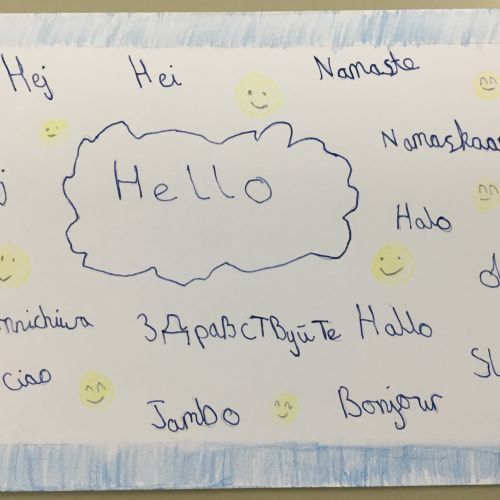 Hej Hei Namaste
Namaskaa
Hello
Halo
nnichiwa Здравствуйте Hallo
Ciao
Jambo Bonjour